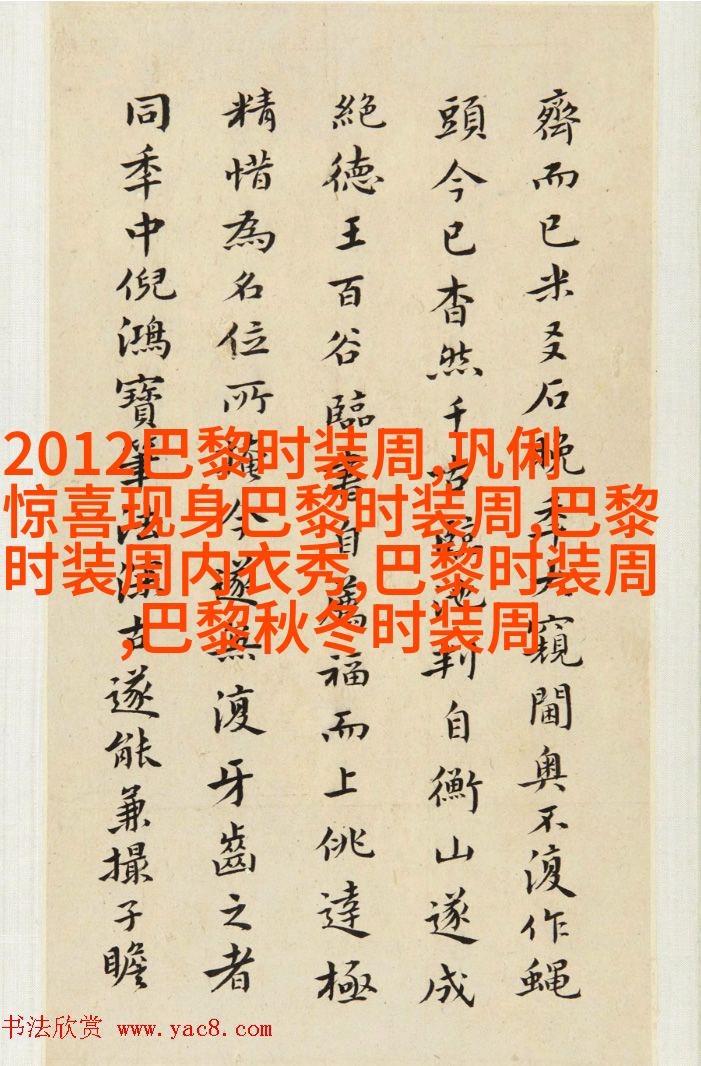 齊而已米友石晚季窺閫奥不復作蠅
頭今已杳然千古臨池判自衡山遂成
絕德王百谷臨者自薦福而上佻達極
精惜為名位所掩今遂無復牙齒之者
同季中倪鴻寶筆法深古遂能兼撮子瞻
2012巴黎时装周,巩俐
惊喜现身巴黎时装周,巴黎
时装周内衣秀,巴黎时装周
,巴黎秋冬时装周
书法欣赏 www.yac8.com